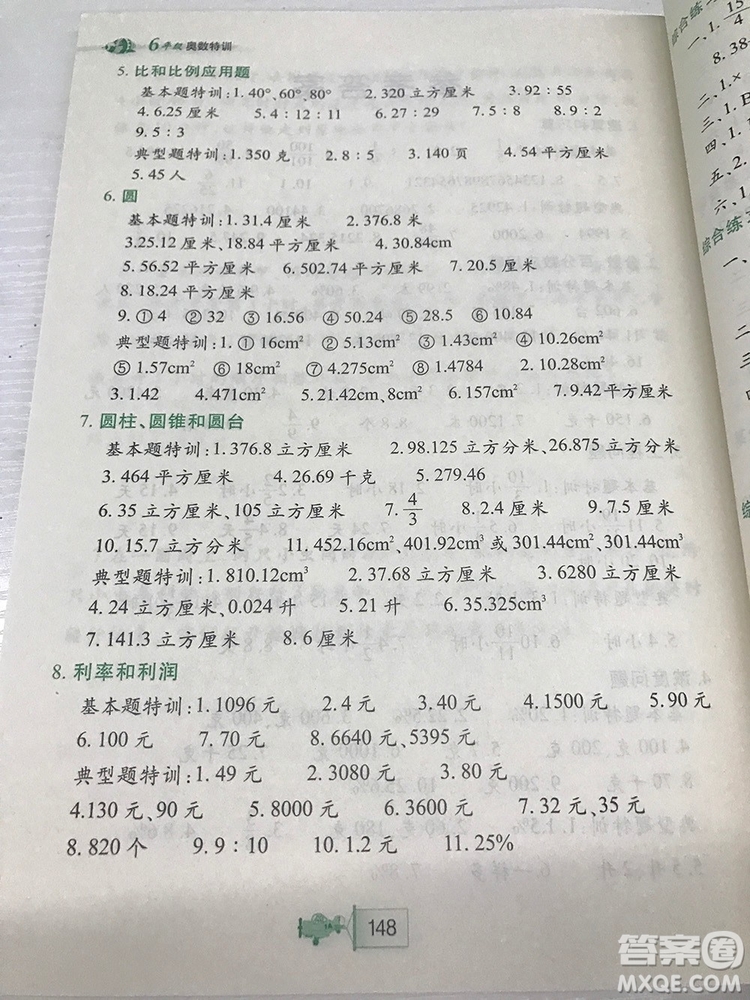 6年级 奥数特训
5. 比和比例应用题
基本题特训:1.40°、60°、80° 2.320 立方厘米 3.92 : 55
4.6.25 厘米 5.4 : 12 : 11 6.27 : 29 7.5 : 8 8.9 : 2
9.5 : 3
典型题特训:1.350 克 2.8 : 5 3.140 页 4.54 平方厘米
5.45 人
6. 圆
基本题特训:1.31.4 厘米 2.376.8 米
3.25.12 厘米、18.84 平方厘米 4.30.84cm
5.56.52 平方厘米 6.502.74 平方厘米 7.20.5 厘米
8.18.24 平方厘米
9.①4 ②32 ③16.56 ④50.24 ⑤28.5 ⑥10.84
典型题特训:1.①16cm² ②5.13cm² ③9cm² ④10.26cm²
⑤1.57cm² ⑥18cm² ⑦2cm² ⑧1.4784 2.10.28cm²
3.1.42 4.471cm² 5.21.42cm、8cm² 6.16cm² 7.9.42 平方厘米
7. 圆柱、圆锥和圆台
基本题特训:1.376.8 立方厘米 2.98.125 立方分米、26.875 立方分米
3.464 平方厘米 4.26.69 千克 5.279.46
6.35 立方厘米、105 立方厘米 7.4/3 8.2.4 厘米 9.7.5 厘米
10.15.7 立方分米 11.452.16cm²、401.92cm³ 或 301.44cm²、301.44cm³
典型题特训:1.810.12cm³ 2.37.68 立方厘米 3.6280 立方厘米
4.24 立方厘米、0.024 升 5.21 升 6.35.325cm³
7.141.3 立方厘米 8.6 厘米
8. 利率和利润
基本题特训:1.1096 元 2.4 元 3.40 元 4.1500 元 5.90 元
6.100 元 7.70 元 8.6640 元、5395 元
典型题特训:1.49 元 2.3080 元 3.80 元
4.130 元、90 元 5.8000 元 6.3600 元 7.32 元、35 元
8.820 个 9.9 : 10 10.1.2 元 11.25%
148
综合练习
一、1. 15/4
8.38
二、1.×
三、1.B
四、1.
五、
六、1.
综合练习
一、
二、
三、
答案圈
MXQE.COM